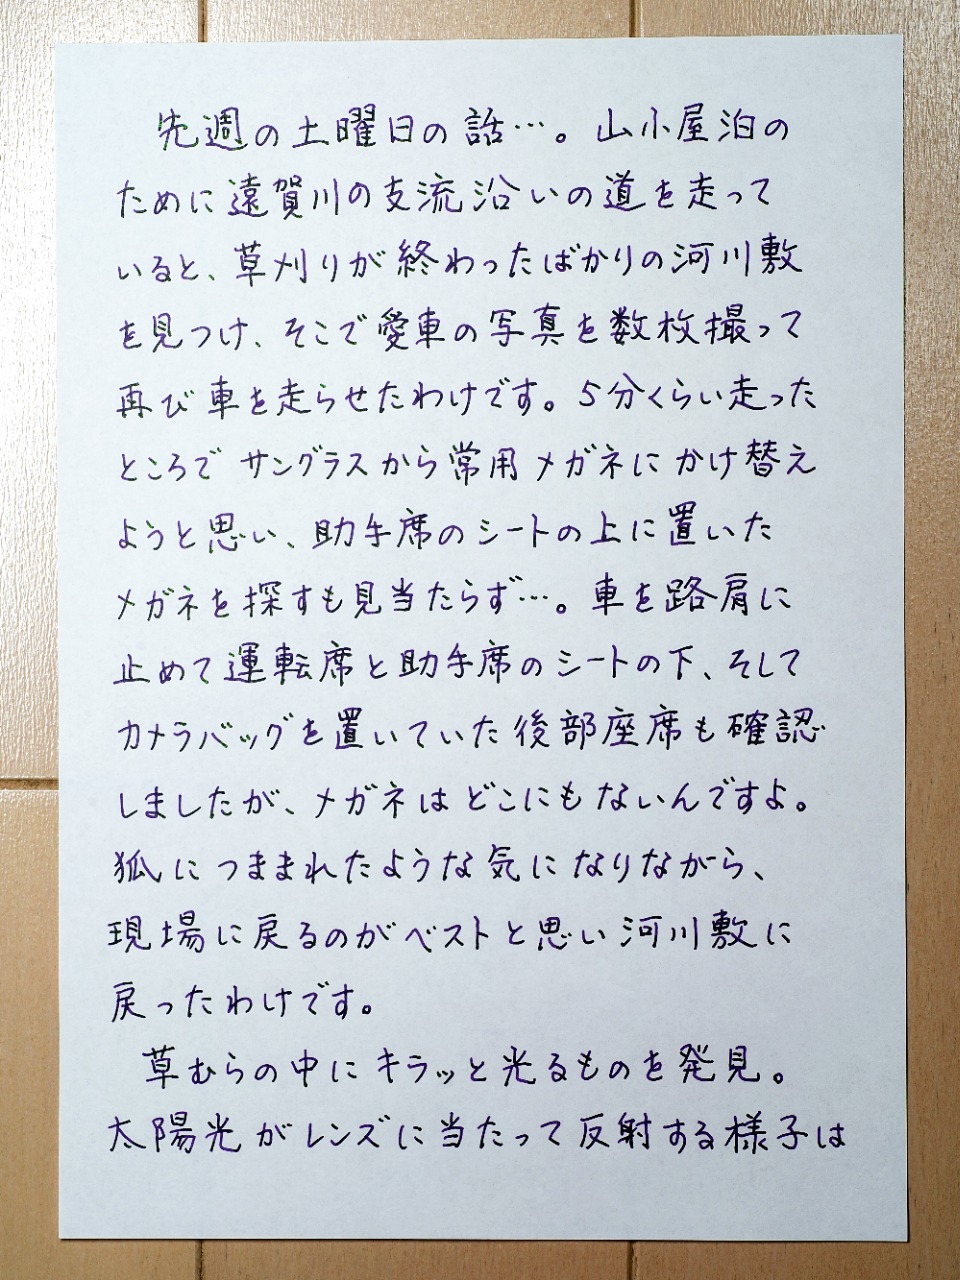 先週の土曜日の話…。山小屋泊の
ために遠賀川の支流沿いの道を走って
いると、草刈りが終わったばかりの河川敷
を見つけ、そこで愛車の写真を数枚撮って
再び車を走らせたわけです。5分くらい走った
ところでサングラスから常用メガネにかけ替え
ようと思い、助手席のシートの上に置いた
メガネを探すも見当たらず…。車を路肩に
止めて運転席と助手席のシートの下、そして
カメラバッグを置いていた後部座席も確認
しましたが、メガネはどこにもないんですよ。
狐につままれたような気になりながら、
現場に戻るのがベストと思い河川敷に
戻ったわけです。
草むらの中にキラッと光るものを発見。
太陽光がレンズに当たって反射する様子は